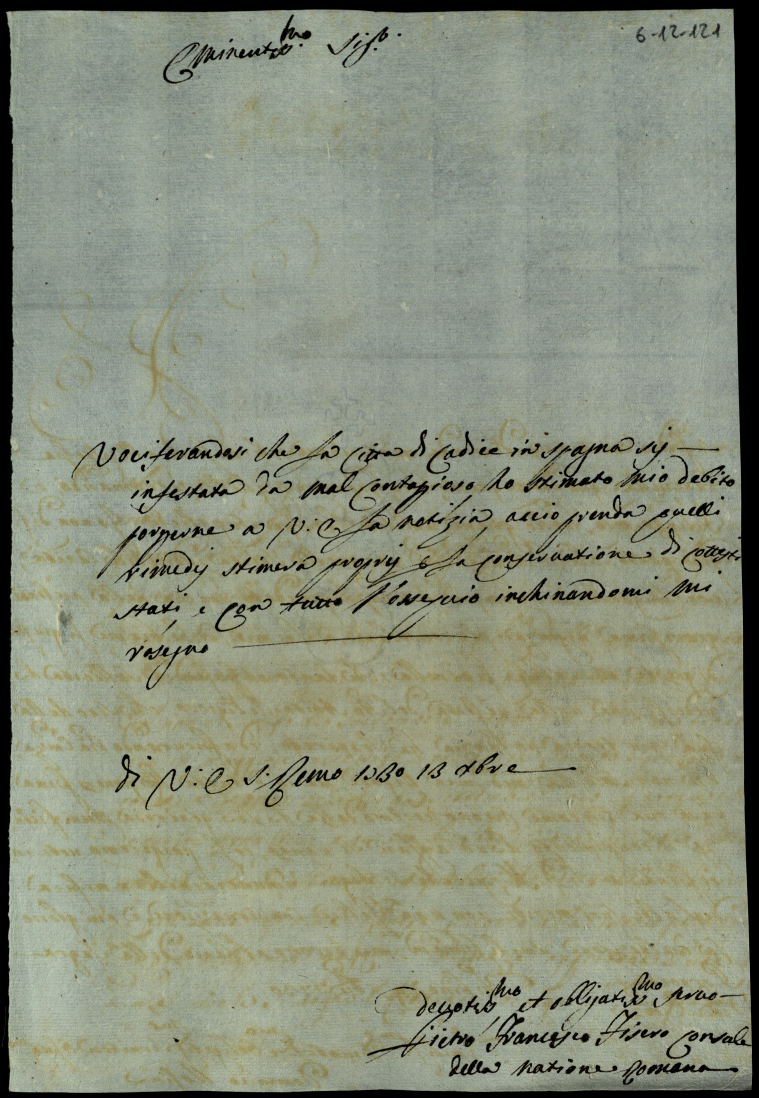 6-12-121
Eminentis.mo Sig.r
Vociferandosi che la Citta di Cadice in spagna sij
infestata da mal Contaggioso ho stimato mio debito
porgerne a V: E la notizia, accio prenda quelli
rimedij stimera proprij p la conservatione di cotesti
stati, e con tutto l'ossequio inchinandomi mi
rasegno
di V: E S: Remo 1730 13 xbre
devotis.mo et obligatis.mo servo
Pietro Francesco Fisero Consule
della natione Romana